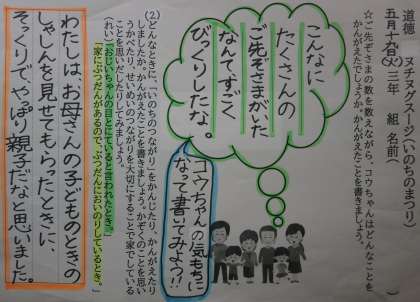 道徳　ヌチヌグスージ(いのちのまつり)
五月十九日(火)三年　組　名前(　)
☆ご先ぞさまの数を数えながら、コウちゃんはどんなことを
かんがえたでしょうか。かんがえたことを書きましょう。
こんなに
たくさんの
ご先ぞさまがいた
なんて、すごく
びっくりしたな。
コウちゃんの気もちに
なって書いてみよう!!
②どんなときに、「いのちのつながり」をかんじたり、かんがえたり
しましたか。かんがえたことを書きましょう。かぞくのことを思い
うかべたり、せいめいのつながりを大切にすることで家でしている
ことを思いだしたりしてみましょう。
(れい)「おじいちゃんの目とにていると言われたとき。」
「家にぶつだんがあるので、ぶつだんにおいのりしているとき。」
わたしは、お母さんの子どものときの
しゃしんを見せてもらったときに、
そっくりで、やっぱり親子だなと思いました。